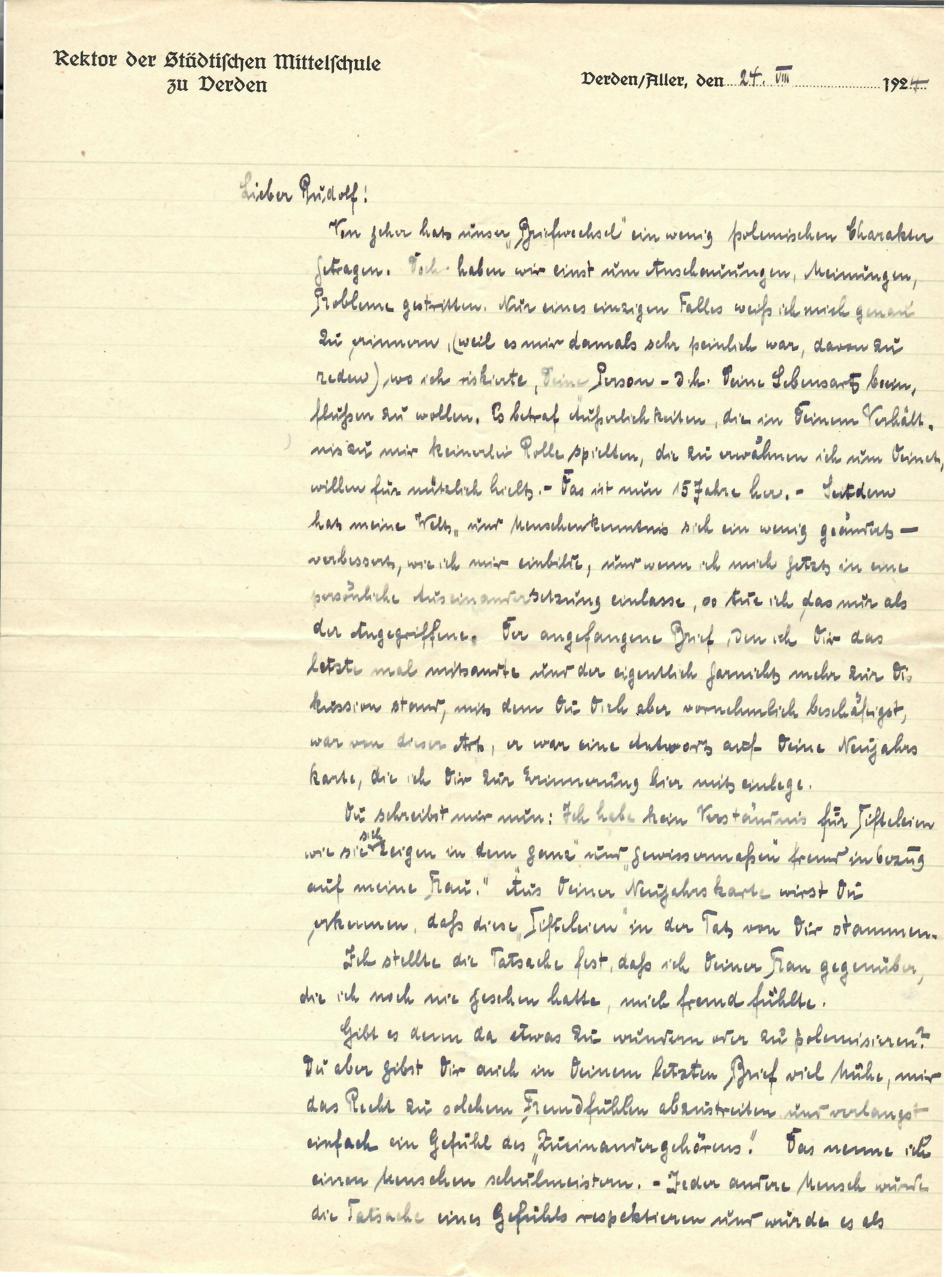 Rektor der Städtischen Mittelschule
zu Verden
Verden/Aller, den 24. VIII 1924
Lieber Rudolf!
Von jeher hat unser „Briefwechsel" ein wenig polemischen Charakter
getragen. Doch haben wir einst um Anschauungen, Meinungen,
Probleme gestritten. Nur eines einzigen Falles weiß ich mich genau
zu erinnern, (weil es mir damals sehr peinlich war, davon zu
reden), wo ich riskierte, Deine Person – d.h. Deine Lebensart beein-
flußen zu wollen. Es betraf Äußerlichkeiten, die in Deinem Verhält-
nis zu mir keinerlei Rolle spielten, die zu erwähnen ich um Deinet-
willen für nützlich hielt. – Das ist nun 15 Jahre her. – Seitdem
hat meine Welt- und Menschenkenntnis sich ein wenig geändert –
verbessert, wie ich mir einbilde, und wenn ich mich jetzt in eine
persönliche Auseinandersetzung einlasse, so tue ich das nur als
der Angegriffene. Der angefangene Brief, den ich Dir das
letzte mal mitsandte und der eigentlich garnicht mehr zur Dis-
kussion stand, mit dem Du Dich aber vornehmlich beschäftigst,
war von dieser Art, er war eine Antwort auf Deine Neujahrs
karte, die ich Dir zur Erinnerung hier mit einlege.
Du schreibst mir nun: Ich habe kein Verständnis für Tifteleien
wie sie sich zeigen in dem „ganz" und „gewissermaßen fremd in bezug
auf meine Frau." Aus Deiner Neujahrskarte wirst Du
erkennen, daß diese „Tifteleien" in der Tat von Dir stammen.
Ich stellte die Tatsache fest, daß ich Deiner Frau gegenüber,
die ich noch nie gesehen hatte, mich fremd fühlte.
Gibt es denn da etwas zu wundern oder zu polemisieren?
Du aber gibst Dir auch in Deinem letzten Brief viel Mühe, mir
das Recht zu solchem Fremdfühlen abzustreiten und verlangst
einfach ein Gefühl des „Zueinandergehörens." Das nenne ich
einen Menschen schulmeistern. – Jeder andere Mensch würde
die Tatsache eines Gefühls respektieren und würde es als